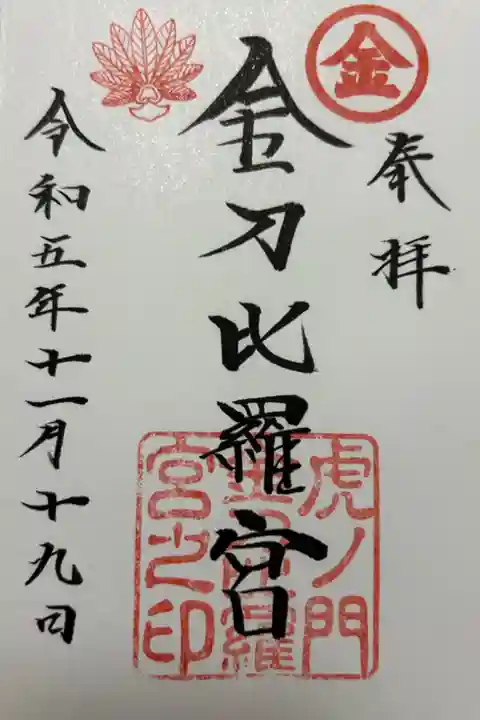 奉拝
金
金刀比羅宮
虎ノ門
金刀比羅
宮之印
令和五年十一月十九日